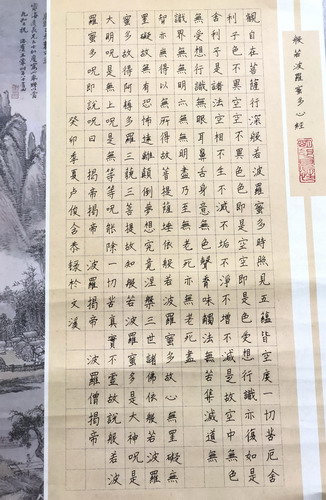 般若波羅蜜多心經
觀自在菩薩行深般若波羅蜜多時照見五蘊皆空度一切苦厄舍
利子色不異空空不異色色即是空空即是色受想行識亦復如是
舍利子是諸法空相不生不滅不垢不淨不增不減是故空中無色
無受想行識無眼耳鼻舌身意無色聲香味觸法無
識界無無明亦無無明盡乃至無老死亦無老死盡無苦集滅道無
智亦無得以無所得故菩提薩埵依般若波羅蜜多故心無罣礙無
罣礙故無有恐怖遠離顛倒夢想究竟涅槃三世諸佛依般若波羅
蜜多故得阿耨多羅三藐三菩提故知般若波羅蜜多是大神呪是
大明呪是無上呪是無等等呪能除一切苦真實不虛故說般若波
羅蜜多呪即說呪曰 揭帝揭帝 波羅揭帝 波羅僧揭帝
癸卯季夏卢俊舍恭録於文